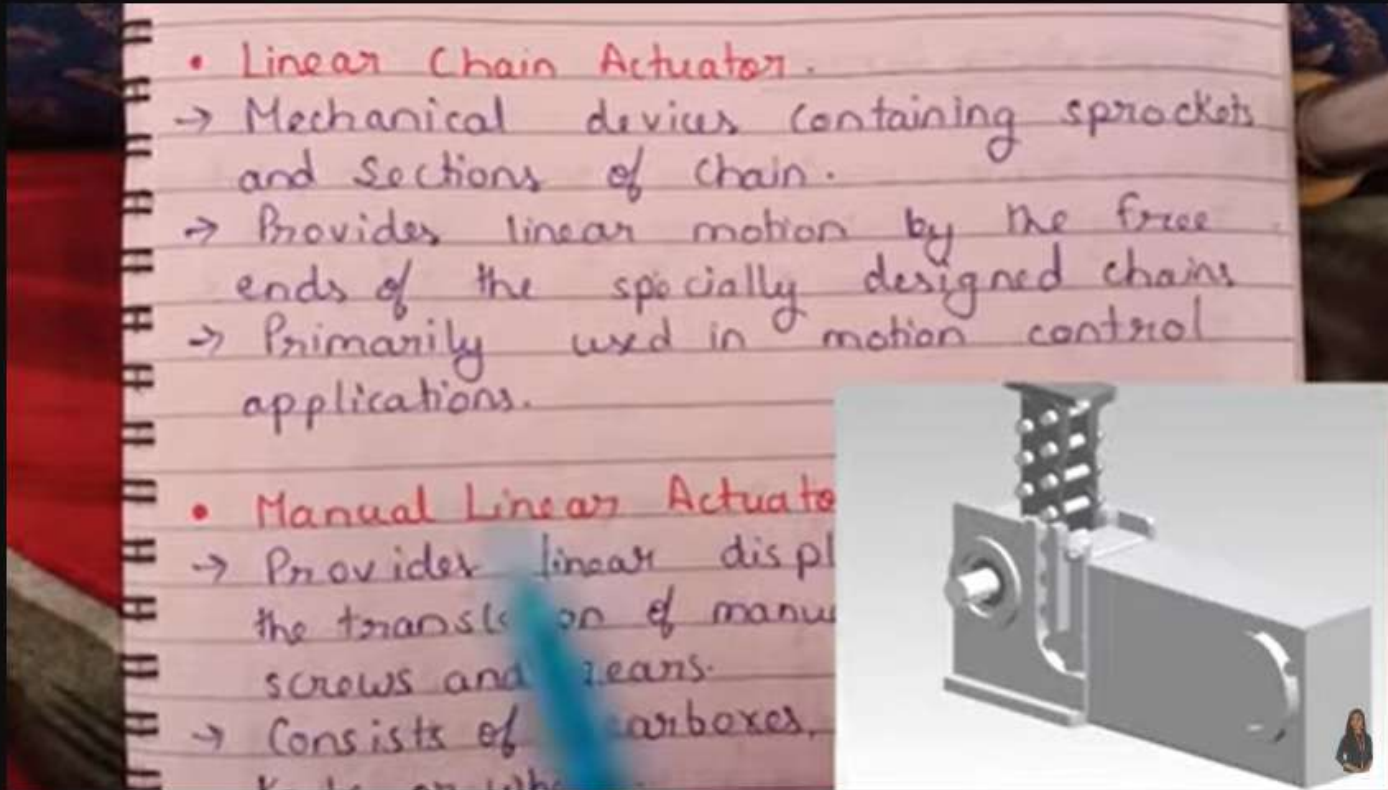 • Linear Chain Actuator.
→ Mechanical devices containing sprockets
and sections of chain.
→ Provides linear motion by the free
ends of the specially designed chains
→ Primarily used in motion control
applications.
• Manual Linear Actuato
→ Provides linear displ
the of manu
screws and
→ Consists of